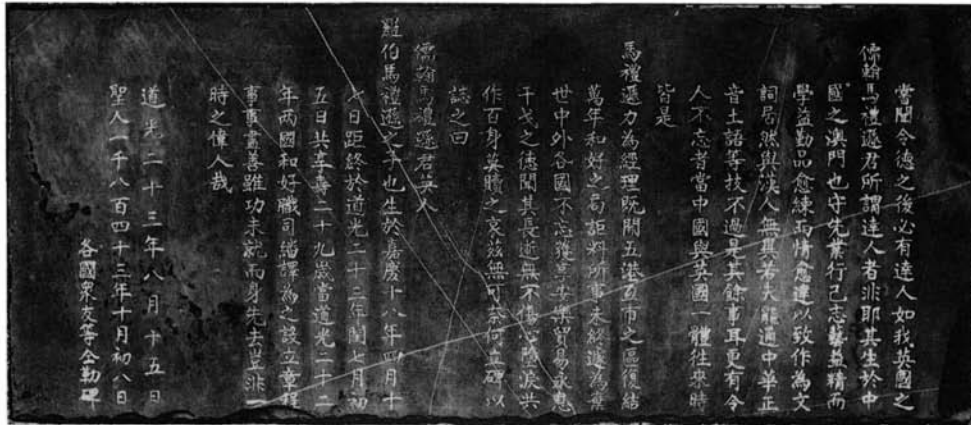 嘗聞令德之後必有達人如我英國之
儒翰馬禮遜君所謂達人者非耶其生於中
國之澳門也守先業行己志藝益精而
學益勤品愈練而情愈達以致作為文
詞居然與漢人無異若夫能通中華正
音土語等技不過是其餘事耳更有令
人不忘者當中國與英國一體往來時
皆是
馬禮遜力為經理既開五港互市之區復結
萬年和好之局詎料所事未終遽為棄
世中外各國不忘獲平安樂貿易永息
干戈之德聞其長逝無不傷心隕淚共
作百身莫贖之哀茲無可奈何立碑以
誌之曰
儒翰馬禮遜君英人
羅伯馬禮遜之子也生於嘉慶十八年四月十
七日距終於道光二十三年閏七月初
五日共享壽二十九歲當道光二十二
年兩國和好職司繙譯為之設立章程
事事盡善雖功未就而身先去豈非一
時之偉人哉
道光二十三年八月十五日
聖人一千八百四十三年十月初八日
各國眾友等仝勒碑